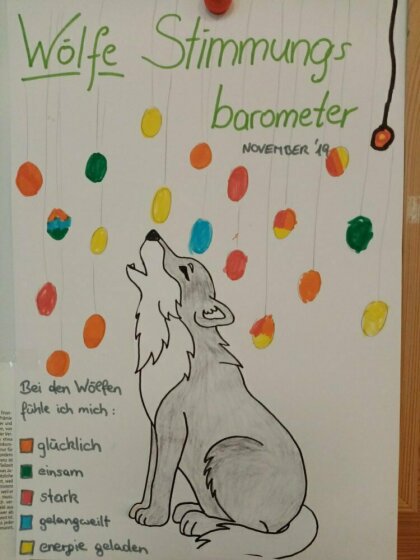 Wölfe Stimmungs
barometer
NOVEMBER '19
Bei den Wölfen
fühle ich mich :
glücklich
einsam
stark
gelangweilt
energie geladen